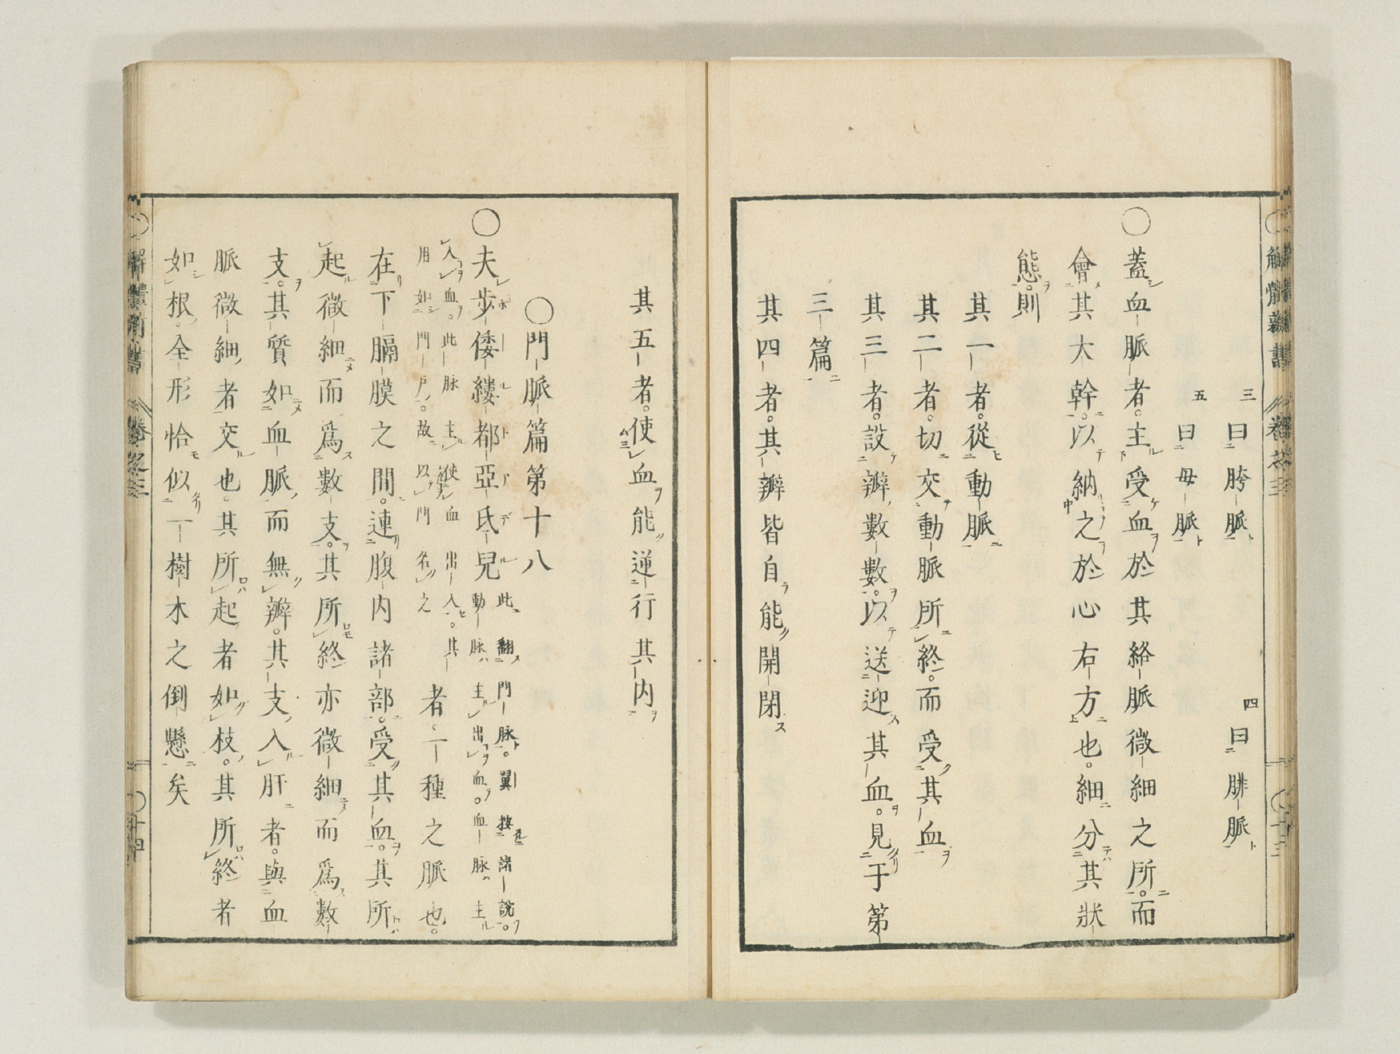 三曰胯脈 四曰腓脈
五曰毋脈
○蓋血脈者主受血於其絡脈微細之所而
會其大幹以納之於心右方也細分其狀
態則
其一者從動脈
其二者切交動脈所終而受其血
其三者設瓣數數以送迎其血見于第
三篇
其四者其瓣皆自能開閉
其五者使血能逆行其内
○門脈篇第十八
○夫歩倭縷都亞氐兒此翻門脈翼按諸説動脈主出血血脈主
入血此脈主使血出入其用如門戸故以門名之者一種之脈也
在下膈膜之間連腹内諸部受其血其所
起微細而爲數支其所終亦微細而爲數
支其質如血脈而無瓣其支入肝者與血
脈微細者交也其所起者如枝其所終者
如根全形恰似一樹木之倒懸矣